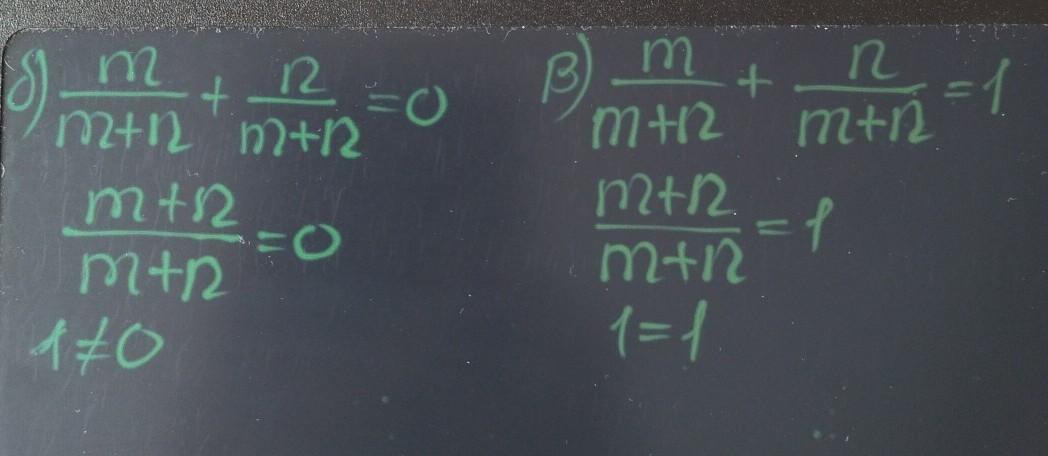 б) m/(m+n) + n/(m+n) = 0
(m+n)/(m+n) = 0
1 ≠ 0
в) m/(m+n) + n/(m+n) = 1
(m+n)/(m+n) = 1
1 = 1